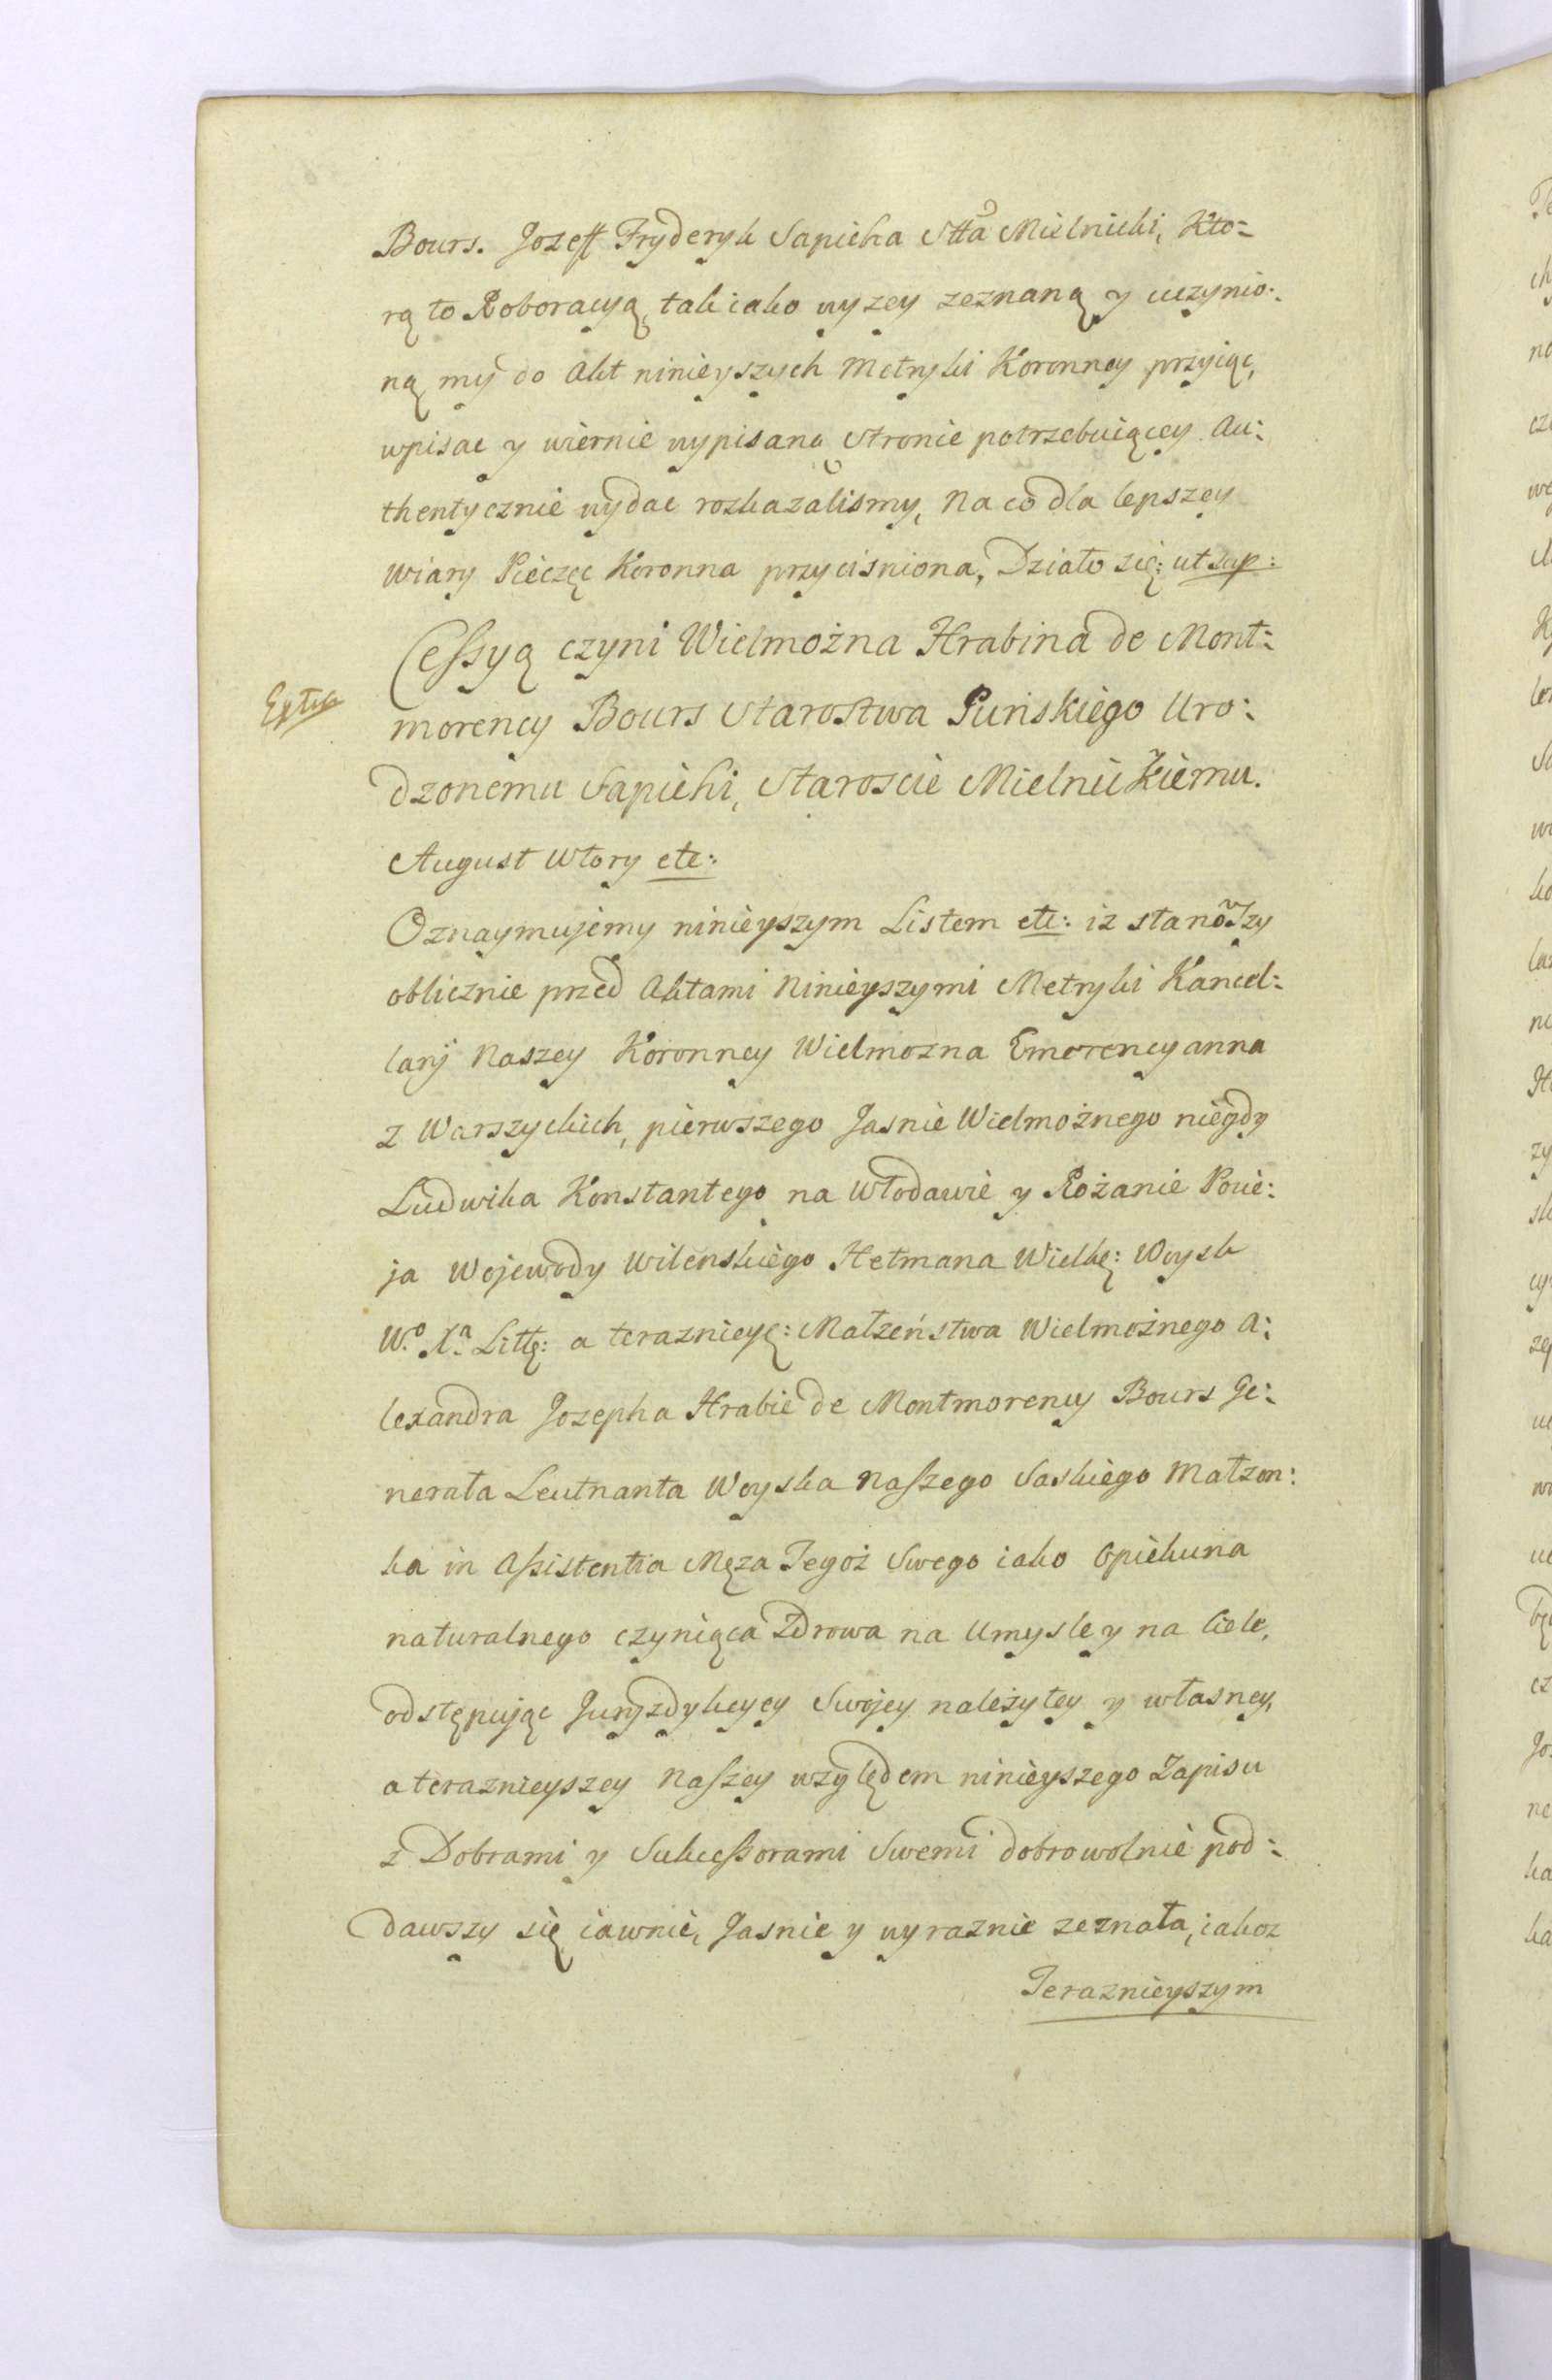 Bours. Jozeff Fryderyk Sapieha Stta Mielnicki, Kto=
rą to Roboracyą, tak iako wyzey zeznaną y uczynio:
ną my do Akt ninieyszych Metryki Koronney przyiąc,
wpisac y wiernie wypisaną Stronie potrzebuiącey Au:
thentycznie wydac rozkazalismy, Na co dla lepszey
wiary Pieczęc Koronna przycisniona, Działo się: ut sup:
Cessyą czyni Wielmożna Hrabina de Mont:
morency Bours Starostwa Puńskiego Uro:
dzonemu Sapiehi, Staroscie Mielnickiemu.
August wtory etc:
Oznaymujemy ninieyszym Listem etc: iz stanowszy
oblicznie przed Aktami Ninieyszymi Metryki Kancel:
laryi Naszey Koronney Wielmozna Emerencyanna
z Warszyckich, pierwszego Jasnie Wielmożnego niegdy
Ludwika Konstantego na Włodawie y Rożanie Pocie:
ja Wojewody Wilenskiego Hetmana Wielkę: Woysk
Wo. Xa. Littę: a teraznieyę: Małżeństwa Wielmożnego A:
lexandra Jozepha Hrabie de Montmorency Bours Ge:
nerała Leutnanta Woyska Naszego Saskiego Małzon:
ka in Assistentia Męza Tegoż Swego iako Opiekuna
naturalnego czyniąca Zdrowa na Umysle y na Ciele,
odstępując Juryzdykcyey Swojey należytey y własney,
a teraznieyszey Naszey względem ninieyszego Zapisu
z Dobrami y Sukcessorami Swemi dobrowolnie pod:
dawszy się iawnie, Jasnie y wyraznie zeznała, iakoz
Teraznieyszym